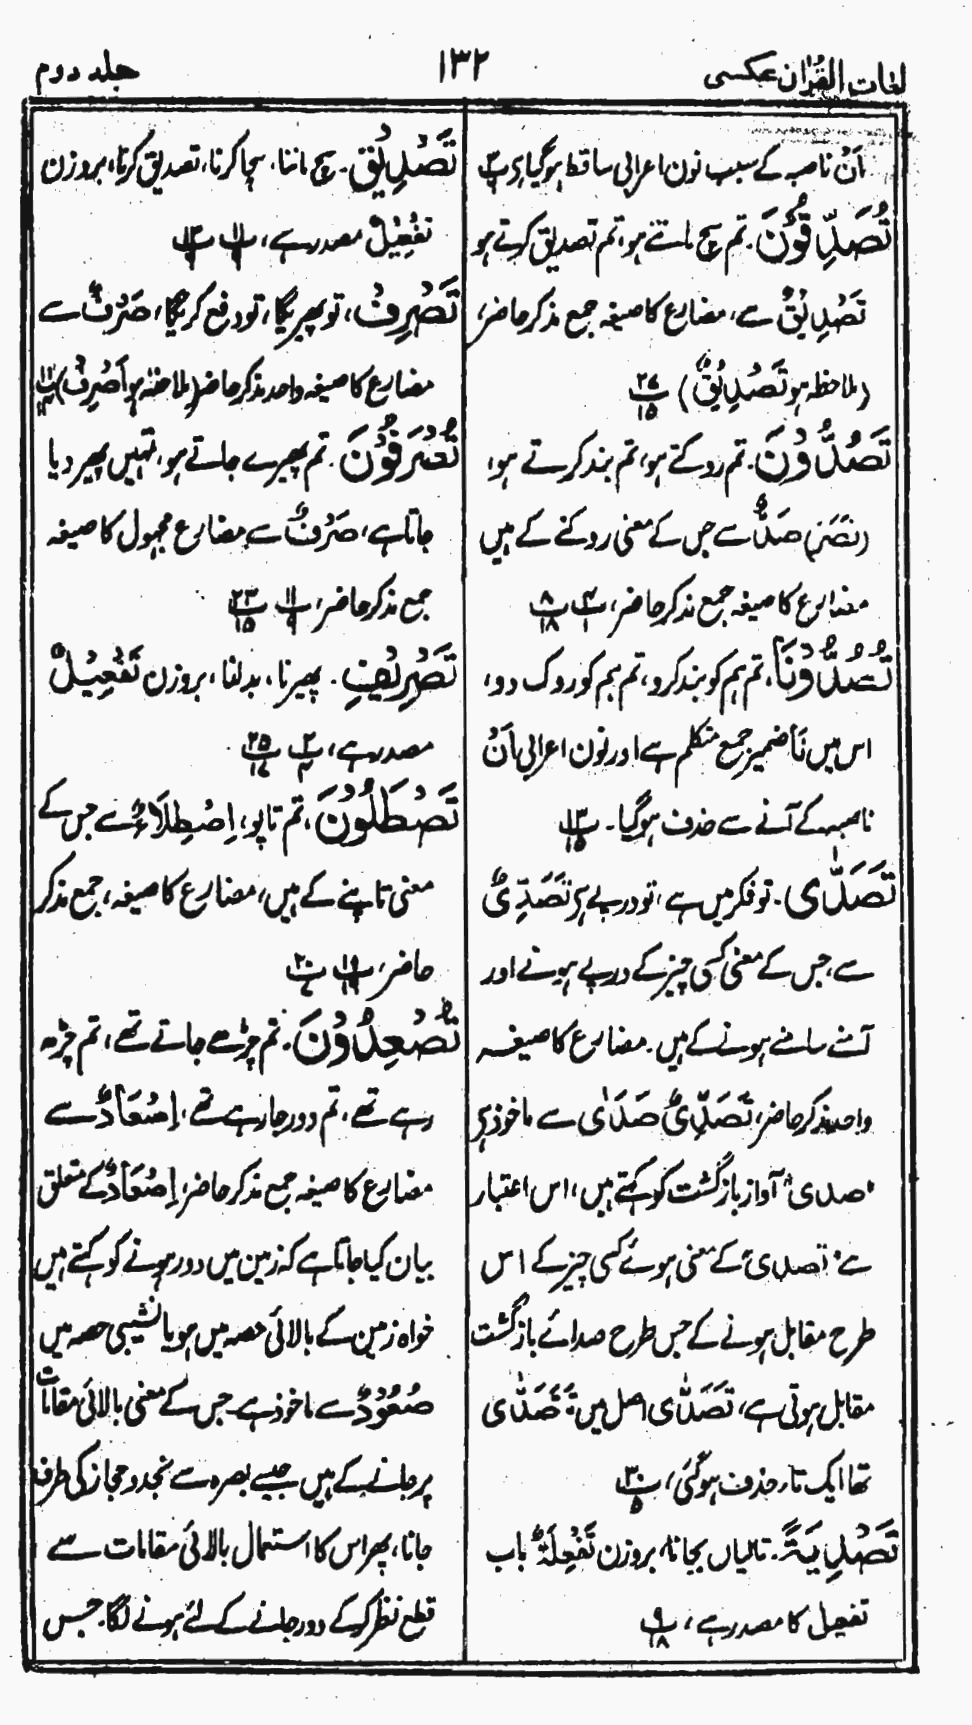 لغات القرآن عکسی
۱۳۲
جلد دوم
اَنْ ناصبہ کے سبب نون اعرابی ساقط ہوگیا ہے
تُصَدِّقُوْنَ. تم سچ مانتے ہو، تم تصدیق کرتے ہو
تَصْدِیْقٌ سے، مضارع کا صیغہ جمع مذکر حاضر،
(ملاحظہ ہو تَصْدِیْقٌ) پ ۲۷ ۱۵
تَصُدُّوْنَ. تم روکتے ہو، تم بند کرتے ہو،
(نَصَرَ) صَدٌّ سے جس کے معنی روکنے کے ہیں
مضارع کا صیغہ جمع مذکر حاضر، پ ۴ ۱ پ ۸ ۱۸
تَصُدُّوْنَا، تم ہم کو بند کرو، تم ہم کو روک دو،
اس میں نَا ضمیر جمع متکلم ہے اور نون اعرابی اَنْ
ناصبہ کے آنے سے حذف ہوگیا. پ ۱۳ ۱۵
تَصَدّٰی. تو فکر میں ہے، تو درپے ہے تَصَدِّیٌ
سے، جس کے معنی کسی چیز کے درپے ہونے اور
آمنے سامنے ہونے کے ہیں. مضارع کا صیغہ
واحد مذکر حاضر، تَصَدِّیٌ صَدَاٰی سے ماخوذ ہے
"صدی" آواز بازگشت کو کہتے ہیں، اس اعتبار
سے "تصدی" کے معنی ہوئے کسی چیز کے اس
طرح مقابل ہونے کے جس طرح صدائے بازگشت
مقابل ہوتی ہے، تَصَدّٰی اصل میں تَتَصَدّٰی
تھا ایک تاء حذف ہوگئی، پ ۳۰ ۵
تَصْدِیَۃً. تالیاں بجانا، بروزن تَفْعِلَۃٌ باب
تفعیل کا مصدر ہے، پ ۹ ۱۸
تَصْدِیْقَ. سچ ماننا، سچا کرنا، تصدیق کرنا، بروزن
تَفْعِیْلٌ مصدر ہے، پ ۱۱ ۹ پ
تَصْرِفْ، تو پھیریگا، تو دفع کریگا، صَرْفٌ سے
مضارع کا صیغہ واحد مذکر حاضر (ملاحظہ ہو اَصْرِفُ) پ
تُصْرَفُوْنَ. تم پھیرے جاتے ہو، تمہیں پھیر دیا
جاتا ہے، صَرْفٌ سے مضارع مجہول کا صیغہ
جمع مذکر حاضر، پ ۱۱ ۹ پ ۲۳ ۱۵
تَصْرِیْفِ. پھیرنا، بدلنا، بروزن تَفْعِیْلٌ
مصدر ہے، پ ۲ ۴ پ ۲۵ ۱۷
تَصْطَلُوْنَ، تم تاپو، اِصْطِلَاءٌ سے جس کے
معنی تاپنے کے ہیں، مضارع کا صیغہ، جمع مذکر
حاضر، پ ۱۹ ۱۶ پ ۲۰ ۷
تُصْعِدُوْنَ. تم چڑھے جاتے تھے، تم چڑھ
رہے تھے، تم دور جارہے تھے، اِصْعَادٌ سے
مضارع کا صیغہ جمع مذکر حاضر، اِصْعَادٌ کے متعلق
بیان کیا جاتا ہے کہ زمین میں دور ہونے کو کہتے ہیں
خواہ زمین کے بالائی حصہ میں ہو یا نشیبی حصہ میں
صُعُوْدٌ سے ماخوذ ہے جس کے معنی بالائی مقامات
پر جانے کے ہیں جیسے بصرہ سے نجد و حجاز کی طرف
جانا، پھر اس کا استعمال بالائی مقامات سے
قطع نظر کرکے دور جانے کے لئے ہونے لگا. جس